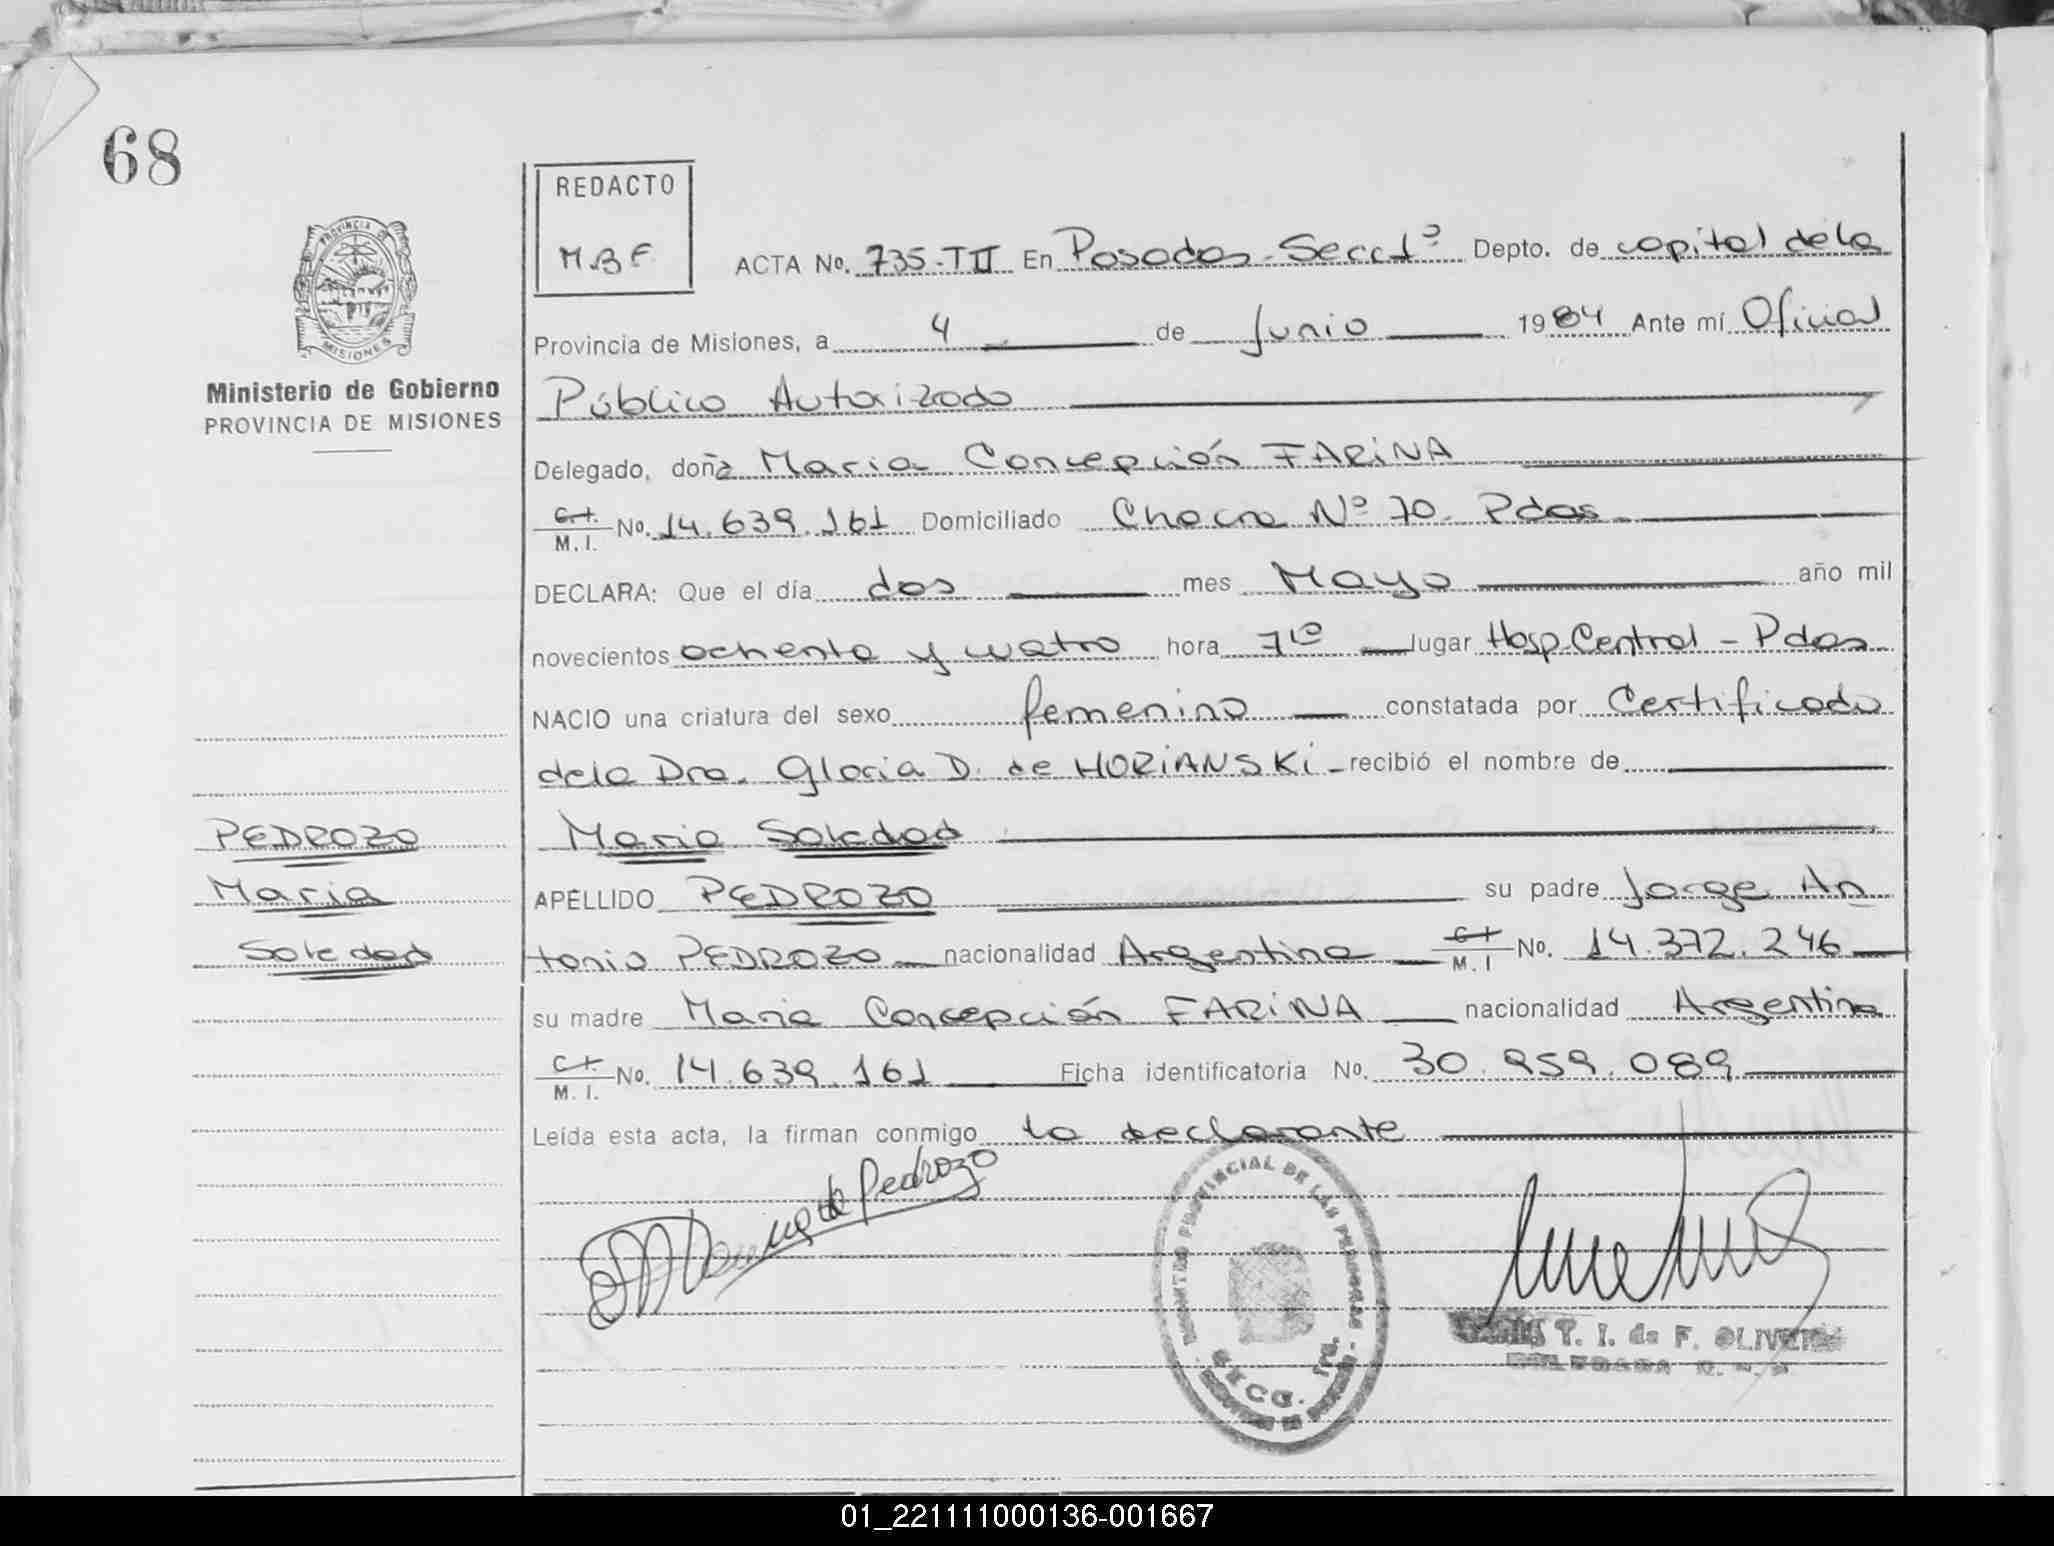 68
REDACTO
M.B.F.
PROVINCIA DE
MISIONES
Ministerio de Gobierno
PROVINCIA DE MISIONES
ACTA No. 735-TII En Posadas-Secc 1ª Depto. de capital de la
Provincia de Misiones, a 4 de Junio 1984 Ante mí Oficial
Público Autorizado
Delegado, doña Maria Concepción FARINA
C.I. M.I. No. 14.639.161 Domiciliado Chacra Nº 70. Pdas
DECLARA: Que el día dos mes Mayo año mil
novecientos ochenta y cuatro hora 7 10 lugar Hosp. Central - Pdas
NACIO una criatura del sexo femenino constatada por Certificado
de la Dra. Gloria D. de HORIANSKI - recibió el nombre de
Maria Soledad
APELLIDO PEDROZO su padre Jorge An
tonio PEDROZO nacionalidad Argentina C.I. M.I No. 14.372.246
su madre Maria Concepción FARINA nacionalidad Argentina
C.I. M.I. No. 14.639.161 Ficha identificatoria No. 30.959.089
Leída esta acta, la firman conmigo la declarante
PEDROZO
Maria
Soledad
de Pedrozo
REGISTRO PROVINCIAL DE LAS PERSONAS
SECC. 1ra.
T. I. de F. OLIVEIRA
01_221111000136-001667